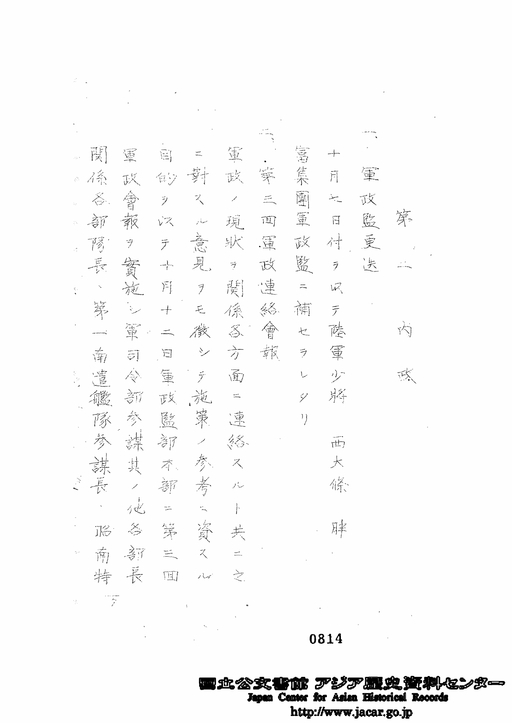 第二 內政
一、軍政監更迭
十月七日付ヲ以テ陸軍少將 西大條 胖
富集團軍政監ニ補セラレタリ
二、第三回軍政連絡會報
軍政ノ現狀ヲ關係各方面ニ連絡スルト共ニ之
ニ對スル意見ヲモ徵シテ施策ノ參考ニ資スル
目的ヲ以テ十月十二日軍政監部本部ニ第三回
軍政會報ヲ實施シ軍司令部參謀其ノ他各部長
關係各部隊長、第一南遣艦隊參謀長、昭南特
0814
国立公文書館 アジア歴史資料センター
Japan Center for Asian Historical Records
http://www.jacar.go.jp